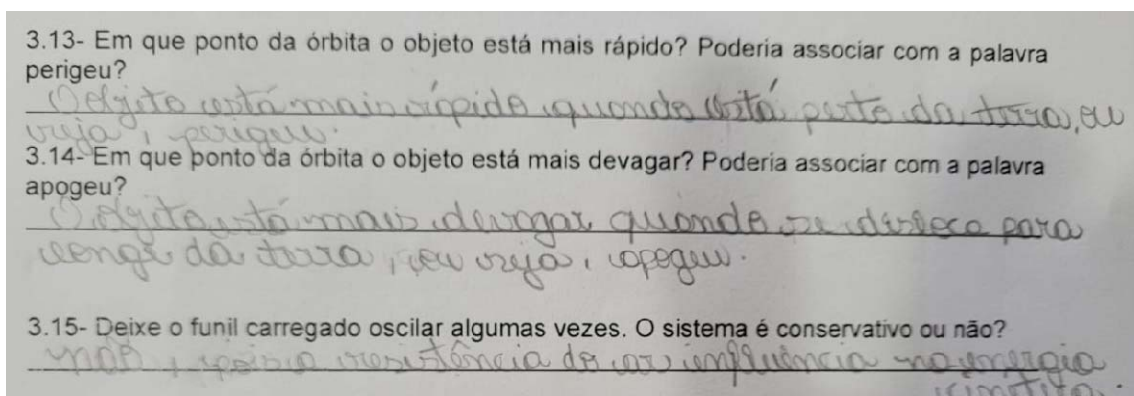 3.13- Em que ponto da órbita o objeto está mais rápido? Poderia associar com a palavra
perigeu?
O objeto está mais rápido quando está perto da terra, ou
seja, perigeu.
3.14- Em que ponto da órbita o objeto está mais devagar? Poderia associar com a palavra
apogeu?
O objeto está mais devagar quando se desloca para
longe da terra, ou seja, apogeu.
3.15- Deixe o funil carregado oscilar algumas vezes. O sistema é conservativo ou não?
não, pois a resistência do ar influência na energia
cinética.